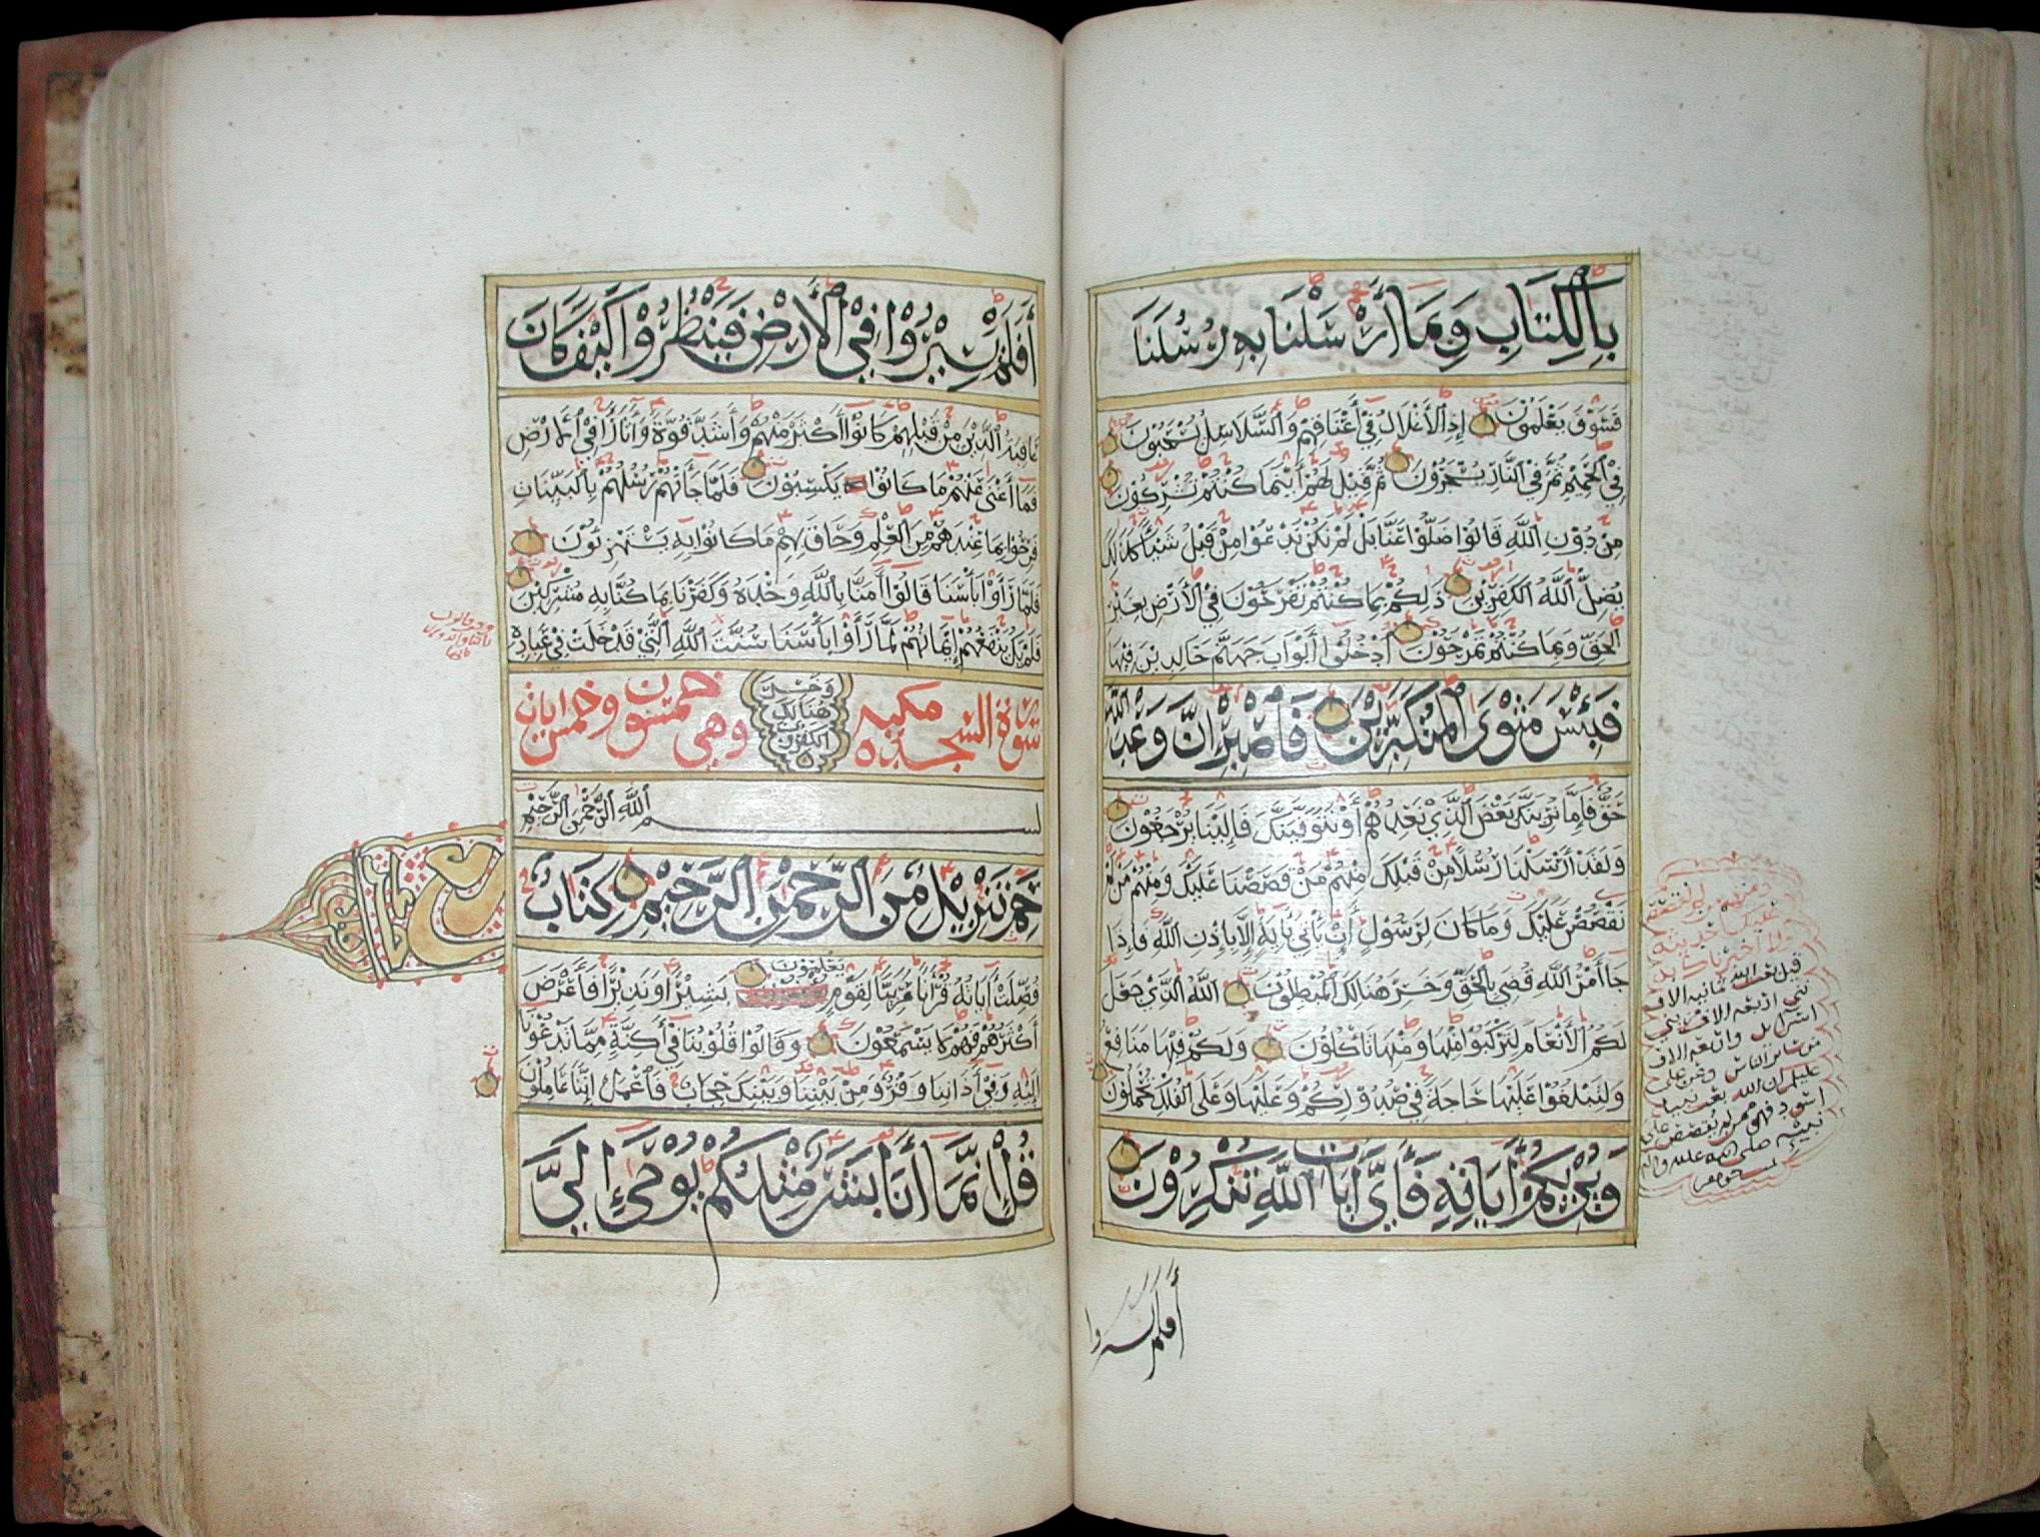 بِالْكِتَابِ وَبِمَا أَرْسَلْنَا بِهِ رُسُلَنَا
فَسَوْفَ يَعْلَمُوْنَ إِذِ الْأَغْلَالُ فِيْ أَعْنَاقِهِمْ وَالسَّلَاسِلُ يُسْحَبُوْنَ
فِيْ الْحَمِيْمِ ثُمَّ فِيْ النَّارِ يُسْجَرُوْنَ ثُمَّ قِيْلَ لَهُمْ أَيْنَمَا كُنْتُمْ تُشْرِكُوْنَ
مِنْ دُوْنِ اللَّهِ قَالُوْا ضَلُّوْا عَنَّا بَل لَمْ نَكُنْ نَدْعُوْا مِنْ قَبْلُ شَيْئًا كَذَلِكَ
يُضِلُّ اللَّهُ الْكَفِرِيْنَ ذَلِكُمْ بِمَا كُنْتُمْ تَفْرَحُوْنَ فِيْ الْأَرْضِ بِغَيْرِ
الْحَقِّ وَبِمَا كُنْتُمْ تَمْرَحُوْنَ اُدْخُلُوْا أَبْوَابَ جَهَنَّمَ خَالِدِيْنَ فِيْهَا
فَبِئْسَ مَثْوَى الْمُتَكَبِّرِيْنَ فَاصْبِرْ إِنَّ وَعْدَ اللَّهِ
حَقٌّ فَإِمَّا نُرِيَنَّكَ بَعْضَ الَّذِيْ نَعِدُهُمْ أَوْ نَتَوَفَّيَنَّكَ فَإِلَيْنَا يُرْجَعُوْنَ
وَلَقَدْ أَرْسَلْنَا رُسُلًا مِنْ قَبْلِكَ مِنْهُمْ مَنْ قَصَصْنَا عَلَيْكَ وَمِنْهُمْ مَنْ لَمْ
نَقْصُصْ عَلَيْكَ وَمَا كَانَ لِرَسُوْلٍ أَنْ يَأْتِيَ بِآيَةٍ إِلَّا بِإِذْنِ اللَّهِ فَإِذَا
جَاءَ أَمْرُ اللَّهِ قُضِيَ بِالْحَقِّ وَخَسِرَ هُنَالِكَ الْمُبْطِلُوْنَ اللَّهُ الَّذِيْ جَعَلَ
لَكُمُ الْأَنْعَامَ لِتَرْكَبُوْا مِنْهَا وَمِنْهَا تَأْكُلُوْنَ وَلَكُمْ فِيْهَا مَنَافِعُ
وَلِتَبْلُغُوْا عَلَيْهَا حَاجَةً فِيْ صُدُوْرِكُمْ وَعَلَيْهَا وَعَلَى الْفُلْكِ تُحْمَلُوْنَ
وَيُرِيْكُمْ آيَاتِهِ فَأَيَّ آيَاتِ اللَّهِ تُنْكِرُوْنَ
قيل بعث الله ثمانية الاف
نبي اربعة الاف من بني
اسرائيل واربعة الاف
من سائر الناس وعن علي
عليه ان الله بعث نبيا
اسود فهو ممن لم يقصص على
نبيه صلى الله عليه واله
أفلم يسيروا
أَفَلَمْ يَسِيْرُوْا فِيْ الْأَرْضِ فَيَنْظُرُوْا كَيْفَ كَانَ
عَاقِبَةُ الَّذِيْنَ مِنْ قَبْلِهِمْ كَانُوْا أَكْثَرَ مِنْهُمْ وَأَشَدَّ قُوَّةً وَآثَارًا فِيْ الْأَرْضِ
فَمَا أَغْنَى عَنْهُمْ مَا كَانُوْا يَكْسِبُوْنَ فَلَمَّا جَاءَتْهُمْ رُسُلُهُمْ بِالْبَيِّنَاتِ
فَرِحُوْا بِمَا عِنْدَهُمْ مِنَ الْعِلْمِ وَحَاقَ بِهِمْ مَا كَانُوْا بِهِ يَسْتَهْزِئُوْنَ
فَلَمَّا رَأَوْا بَأْسَنَا قَالُوْا آمَنَّا بِاللَّهِ وَحْدَهُ وَكَفَرْنَا بِمَا كُنَّا بِهِ مُشْرِكِيْنَ
فَلَمْ يَكُ يَنْفَعُهُمْ إِيْمَانُهُمْ لَمَّا رَأَوْا بَأْسَنَا سُنَّتَ اللَّهِ الَّتِيْ قَدْ خَلَتْ فِيْ عِبَادِهِ
سورة السجده مكيه وَخَسِرَ هُنَالِكَ الْكَفِرُوْنَ وهي خمسون وخمس ايات
بسم اللَّهِ الرَّحْمَنِ الرَّحِيْمِ
حم تَنْزِيْلٌ مِنَ الرَّحْمَنِ الرَّحِيْمِ كِتَابٌ
فُصِّلَتْ آيَاتُهُ قُرْآنًا عَرَبِيًّا لِقَوْمٍ يَعْلَمُوْنَ بَشِيْرًا وَنَذِيْرًا فَأَعْرَضَ
أَكْثَرُهُمْ فَهُمْ لَا يَسْمَعُوْنَ وَقَالُوْا قُلُوْبُنَا فِيْ أَكِنَّةٍ مِمَّا تَدْعُوْنَا
إِلَيْهِ وَفِيْ آذَانِنَا وَقْرٌ وَمِنْ بَيْنِنَا وَبَيْنِكَ حِجَابٌ فَاعْمَلْ إِنَّنَا عَامِلُوْنَ
قُلْ إِنَّمَا أَنَا بَشَرٌ مِثْلُكُمْ يُوْحَى إِلَيَّ